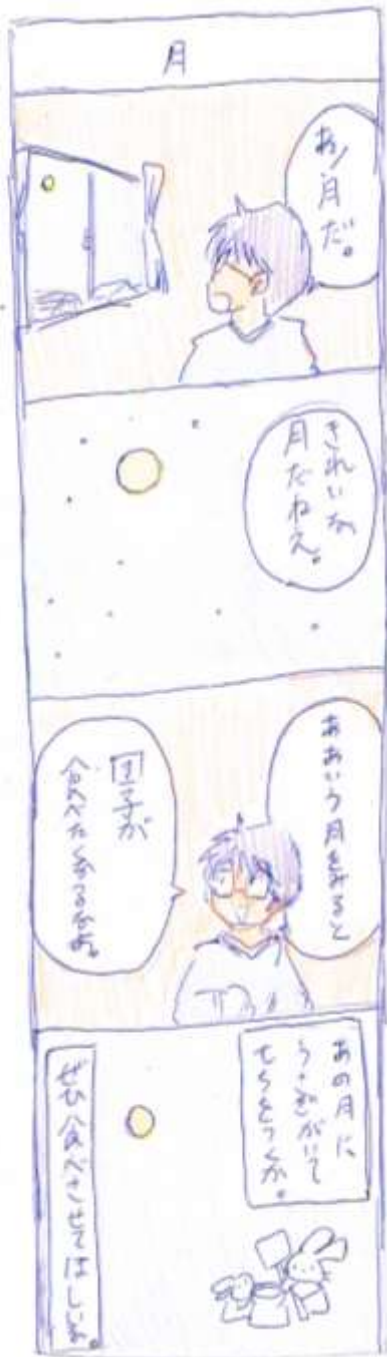 月
あ!月だ。
きれいな
月だねえ。
ああいう月をみると
団子が
食べたくなるなあ。
あの月に
うさぎがいて
もちをつくか。
ぜひ食べさせてほしいよ。